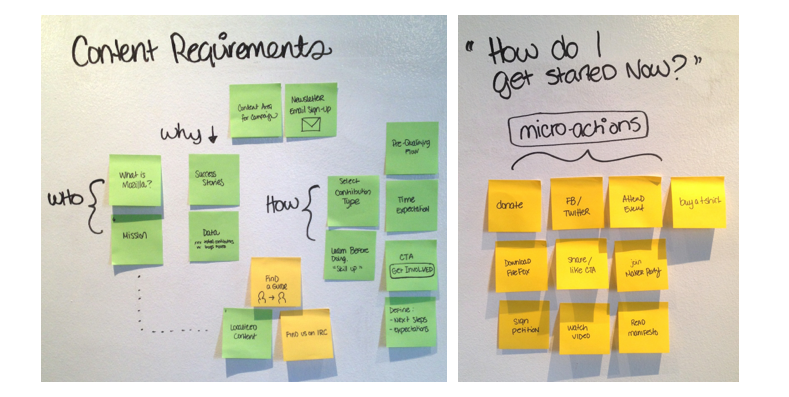 Content Requirements
Content Area
for campaign
Newsletter
Email Sign-up
Why
WHO
What is
Mozilla?
Mission
Success
Stories
Data
How
Select
Contribution
Type
Learn Before
Doing
"Skill up"
Pre-Qualifying
Flow
Time
Expectation
CTA
Get Involved
Define:
- Next Steps
- expectations
Find
a Guide
Localized
Content
Find us on IRC
"How do I
get started Now?"
micro-actions
donate
FB/
Twitter
Attend
Event
buy a t-shirt
Download
Firefox
share/
like CTA
join
Maker Party
Sign
petition
watch
video
Read
manifesto